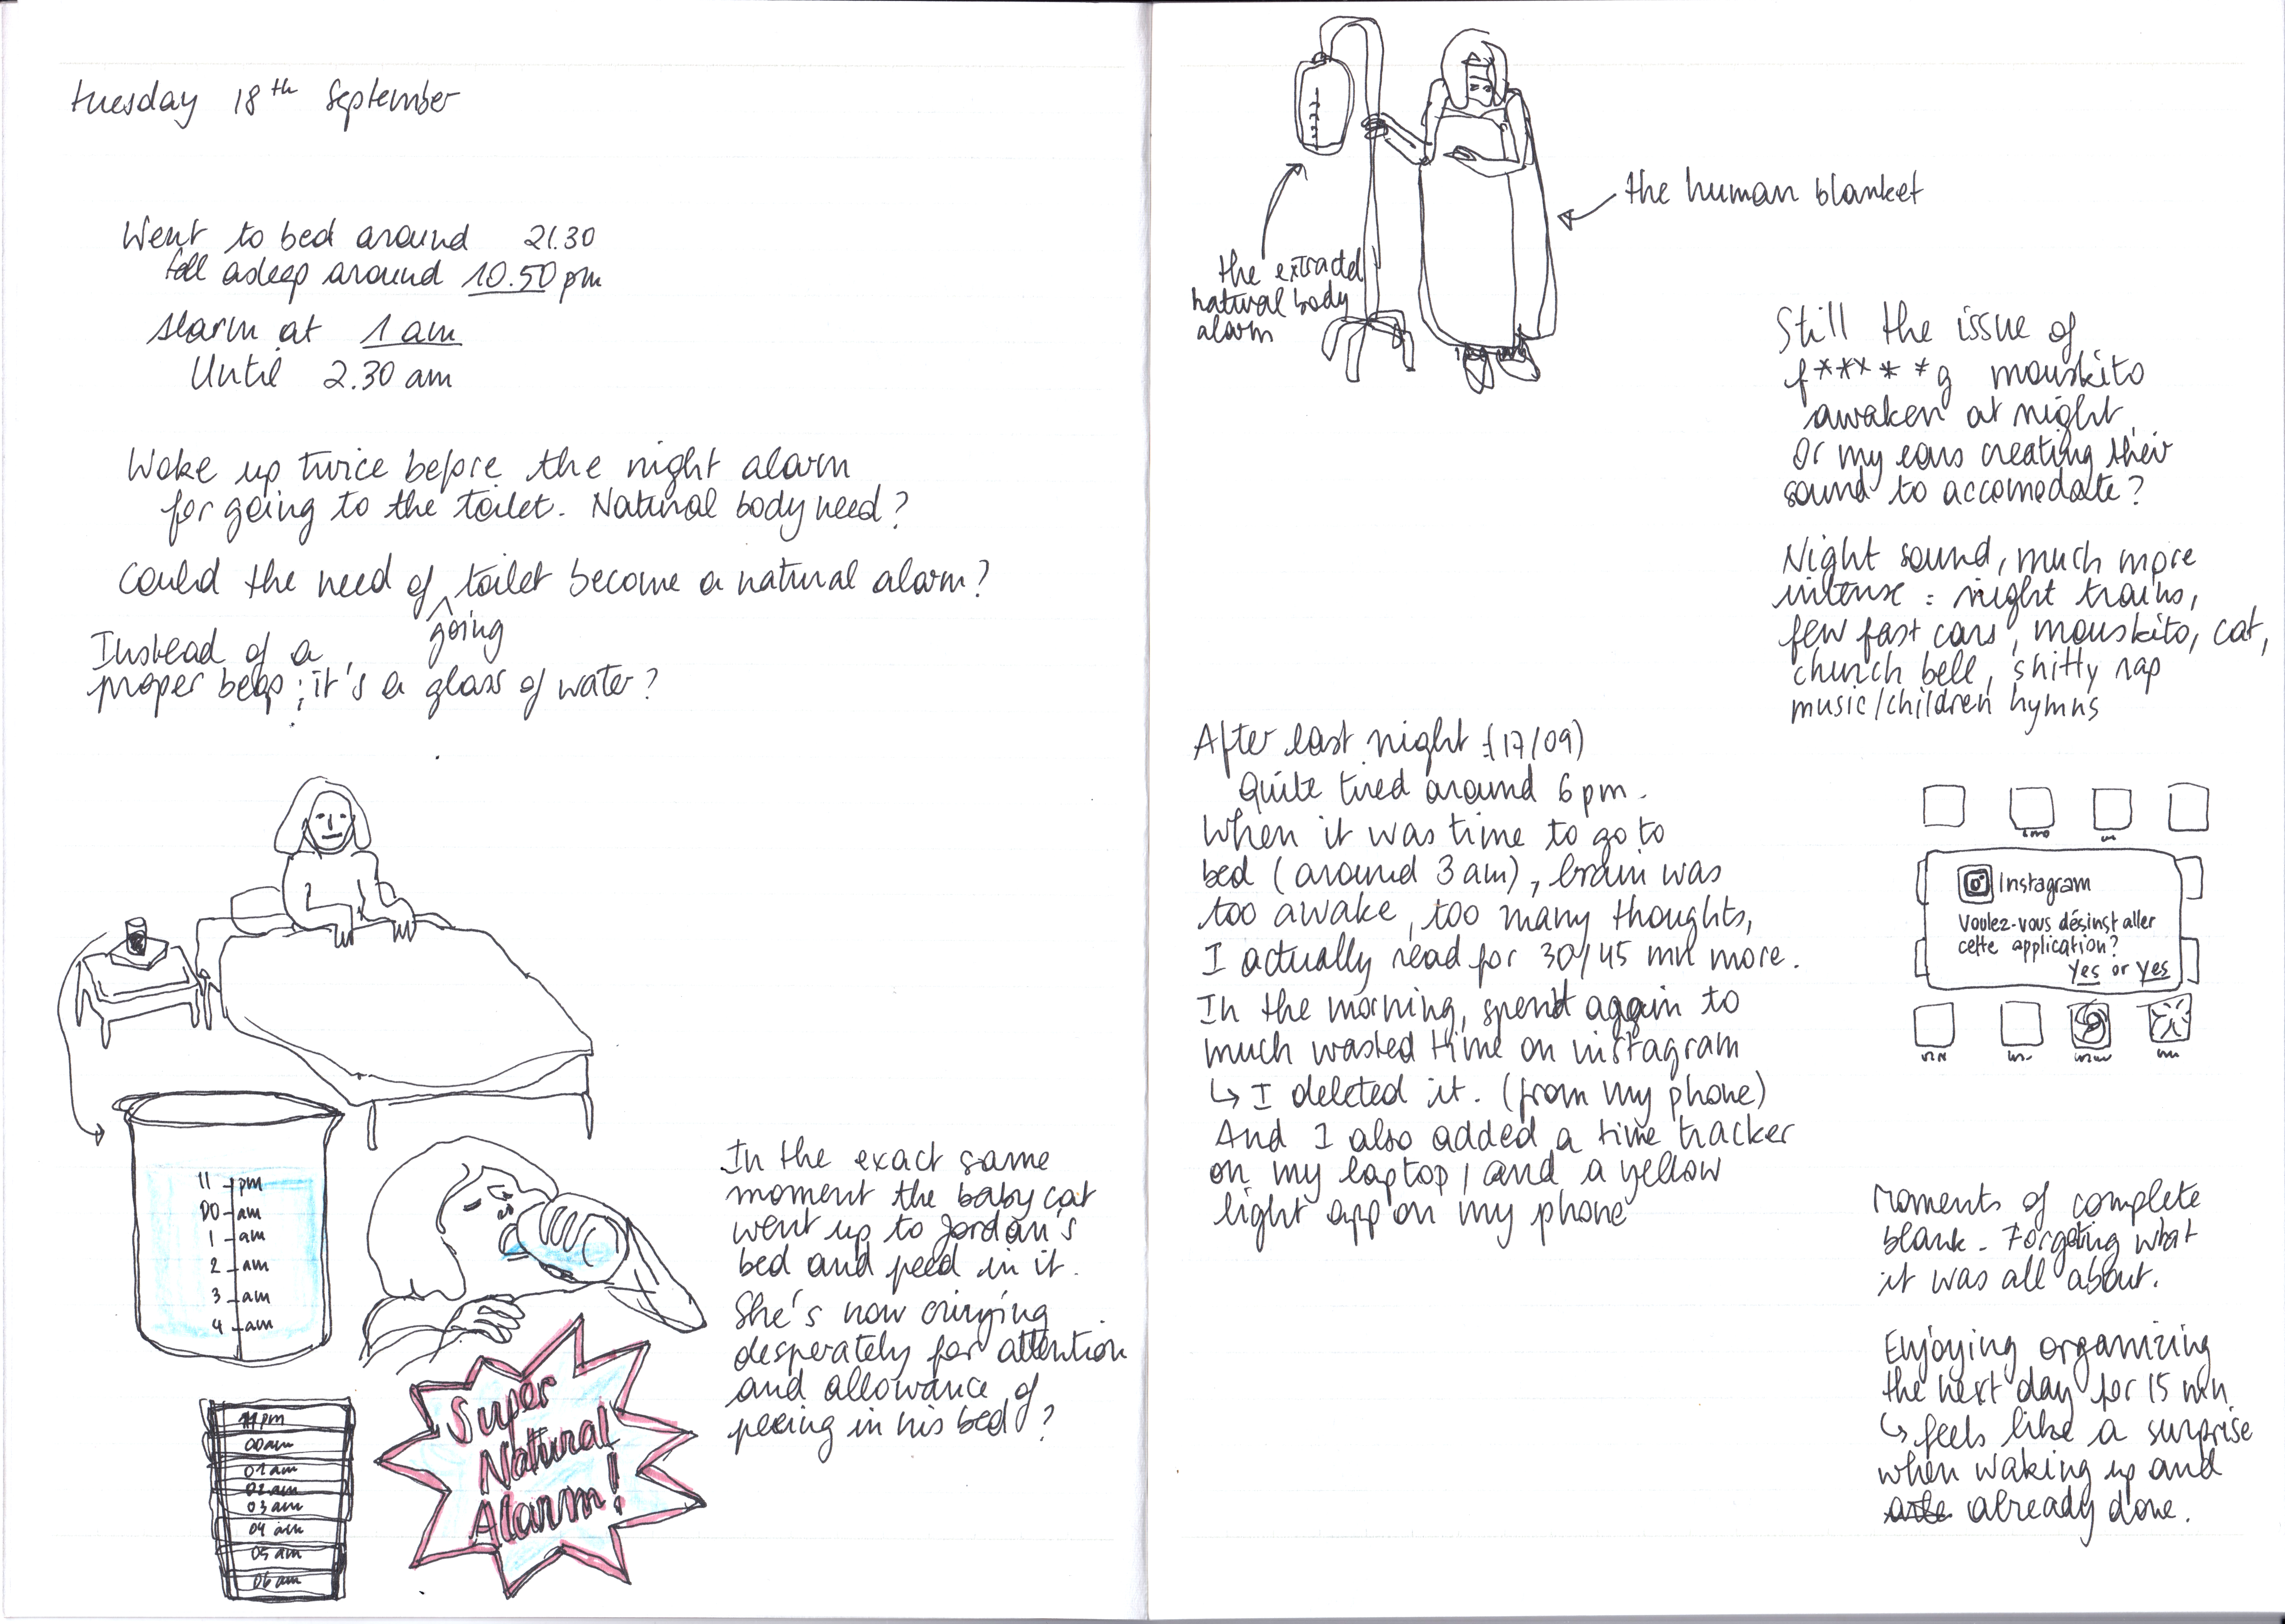 tuesday 18th September
Went to bed around 21.30
fell asleep around 10.50 pm
Alarm at 1 am
Until 2.30 am
Woke up twice before the night alarm
for going to the toilet. Natural body need?
Could the need of going toilet become a natural alarm?
Instead of a
proper beep; it's a glass of water?
11 pm
00 am
1 am
2 am
3 am
4 am
11 pm
00 am
01 am
02 am
03 am
04 am
05 am
06 am
Super
Natural
Alarm!
In the exact same
moment the baby cat
went up to Jordan's
bed and peed in it.
She's now crying
desperately for attention
and allowance of
peeing in his bed?
the extracted
natural body
alarm
the human blanket
Still the issue of
f*****g mouskito
awaken at night
Or my ears creating their
sound to accomodate?
Night sound, much more
intense : night trains,
few fast cars, mouskito, cat,
church bell, shitty rap
music/children hymns
After last night :(17/09)
Quite tired around 6 pm.
When it was time to go to
bed (around 3 am), brain was
too awake, too many thoughts,
I actually read for 30/45 mn more.
In the morning, spend again to
much wasted time on instagram
↳ I deleted it. (from my phone)
And I also added a time tracker
on my laptop, and a yellow
light app on my phone
Instagram
Voulez-vous désinstaller
cette application?
Yes or Yes
Moments of complete
blank. Forgeting what
it was all about.
Enjoying organizing
the next day for 15 mn
↳ feels like a surprise
when waking up and
already done.